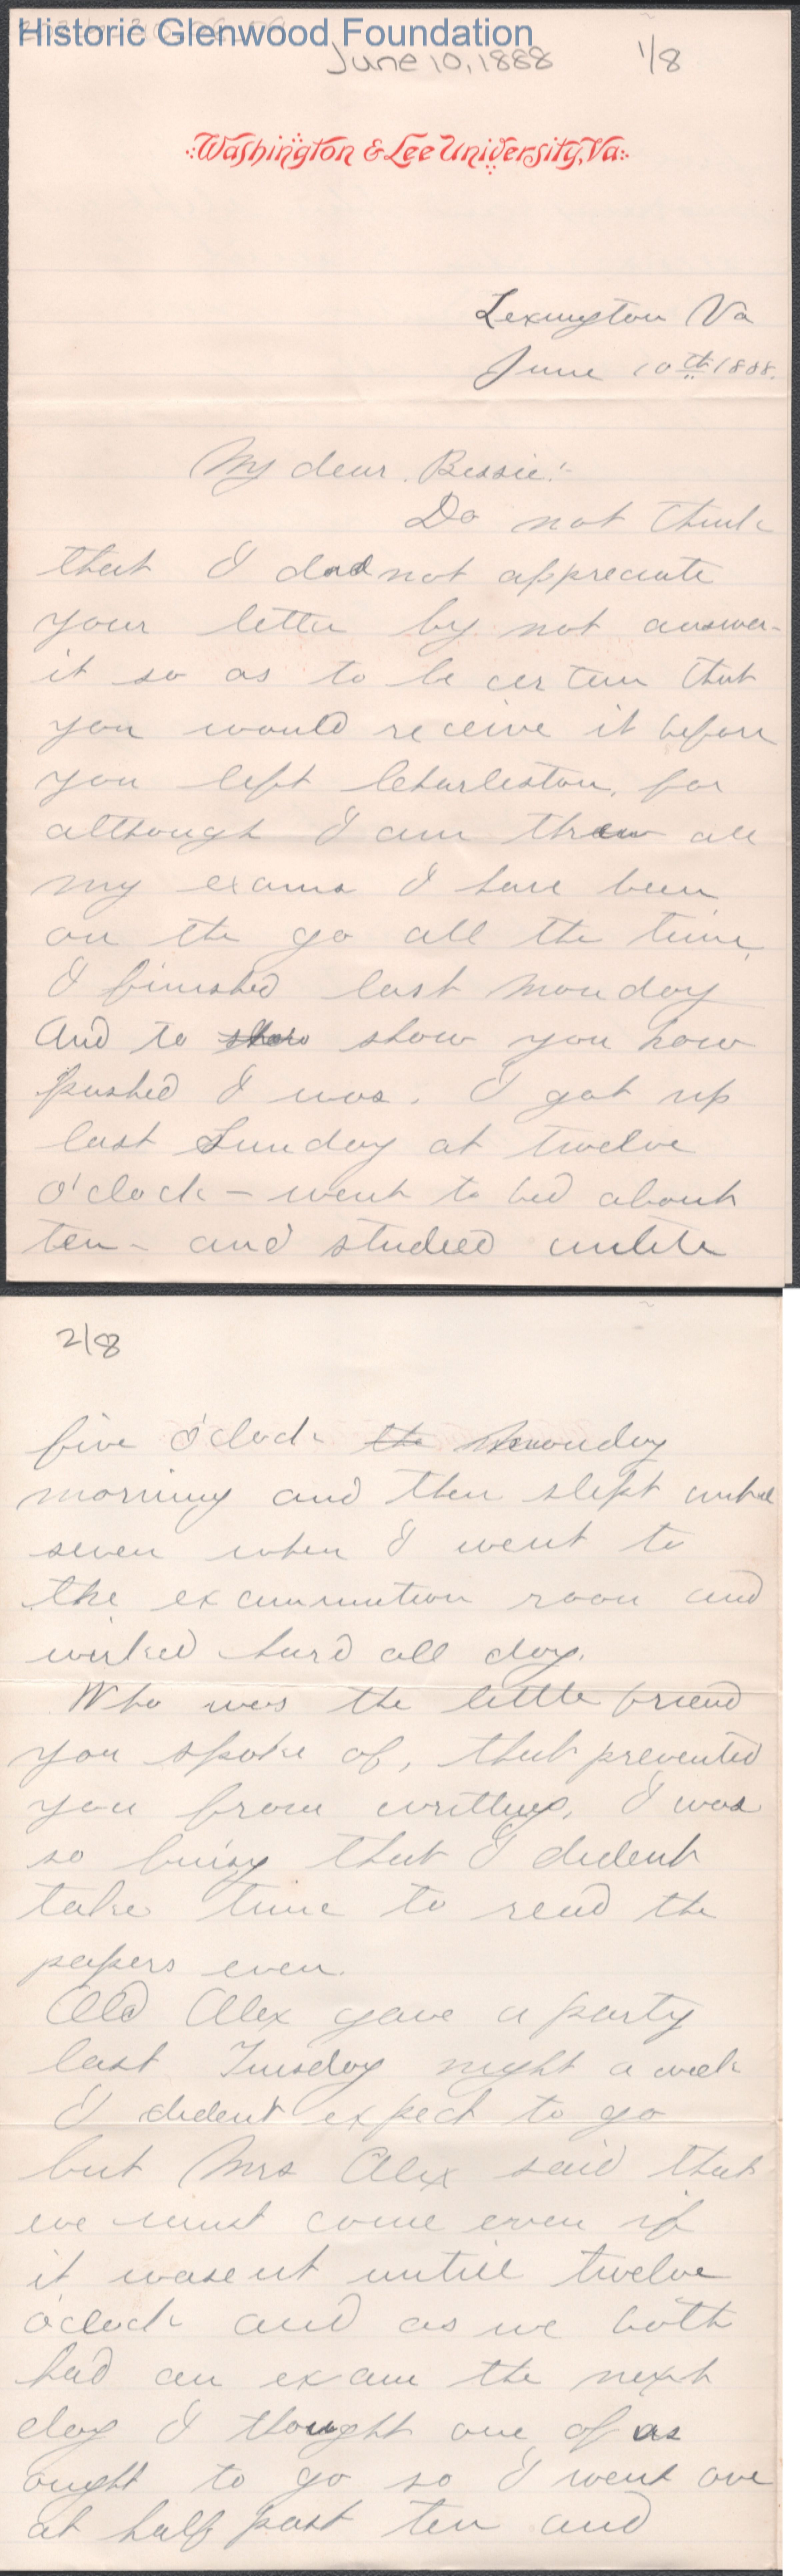 Historic Glenwood Foundation
June 10, 1888 1/8
Washington & Lee University, Va.
Lexington Va
June 10th 1888.
My dear Bessie:-
Do not think
that I did not appreciate
your letter by not answer-
it so as to be certain that
you would receive it before
you left Charleston, for
although I am threw all
my exams I have been
on the go all the time,
I finished last Monday
And to show show you how
pushed I was. I got up
last Sunday at twelve
o'clock - went to bed about
ten - and studied untill
2/8
five o'clock the Monday
morning and then slept untill
seven when I went to
the examination room and
worked hard all day.
Who was the little friend
you spoke of, that prevented
you from writting, I was
so buisy that I dident
take time to read the
papers even.
Old Alex gave a party
last Tuesday night a week
I dident expect to go
but Mrs Alex said that
we must come even if
it wasent untill twelve
o'clock and as we both
had an exam the next
day I thought one of us
ought to go so I went over
at half past ten and